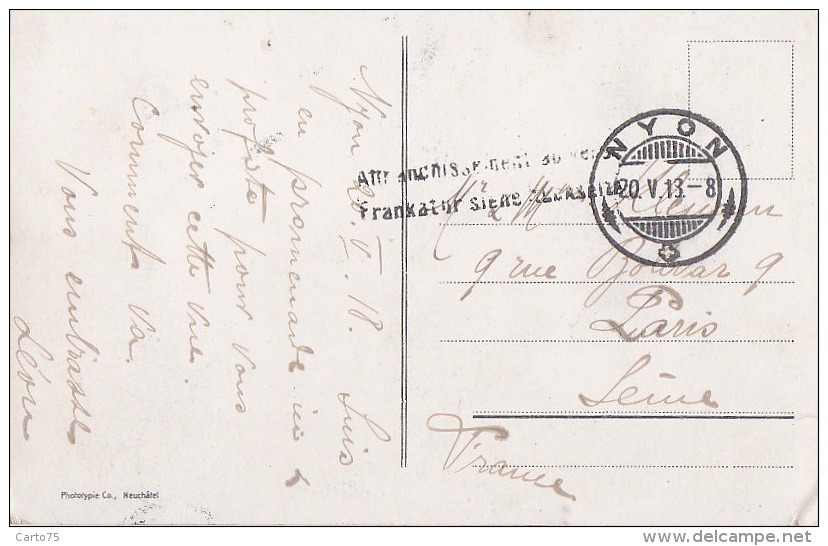 Nyon 20 V 18. Suis
en promenade ici &
profite pour vous
envoyer cette vue.
Comment va.
Vous embrasse
Léon
Affranchissement au verso
Frankatur siehe Rückseite
NYON
20. V. 13.-8
Mr & Mme
9 rue 9
Paris
Seine
France
Phototypie Co., Neuchâtel
Carto75
delcampe.net